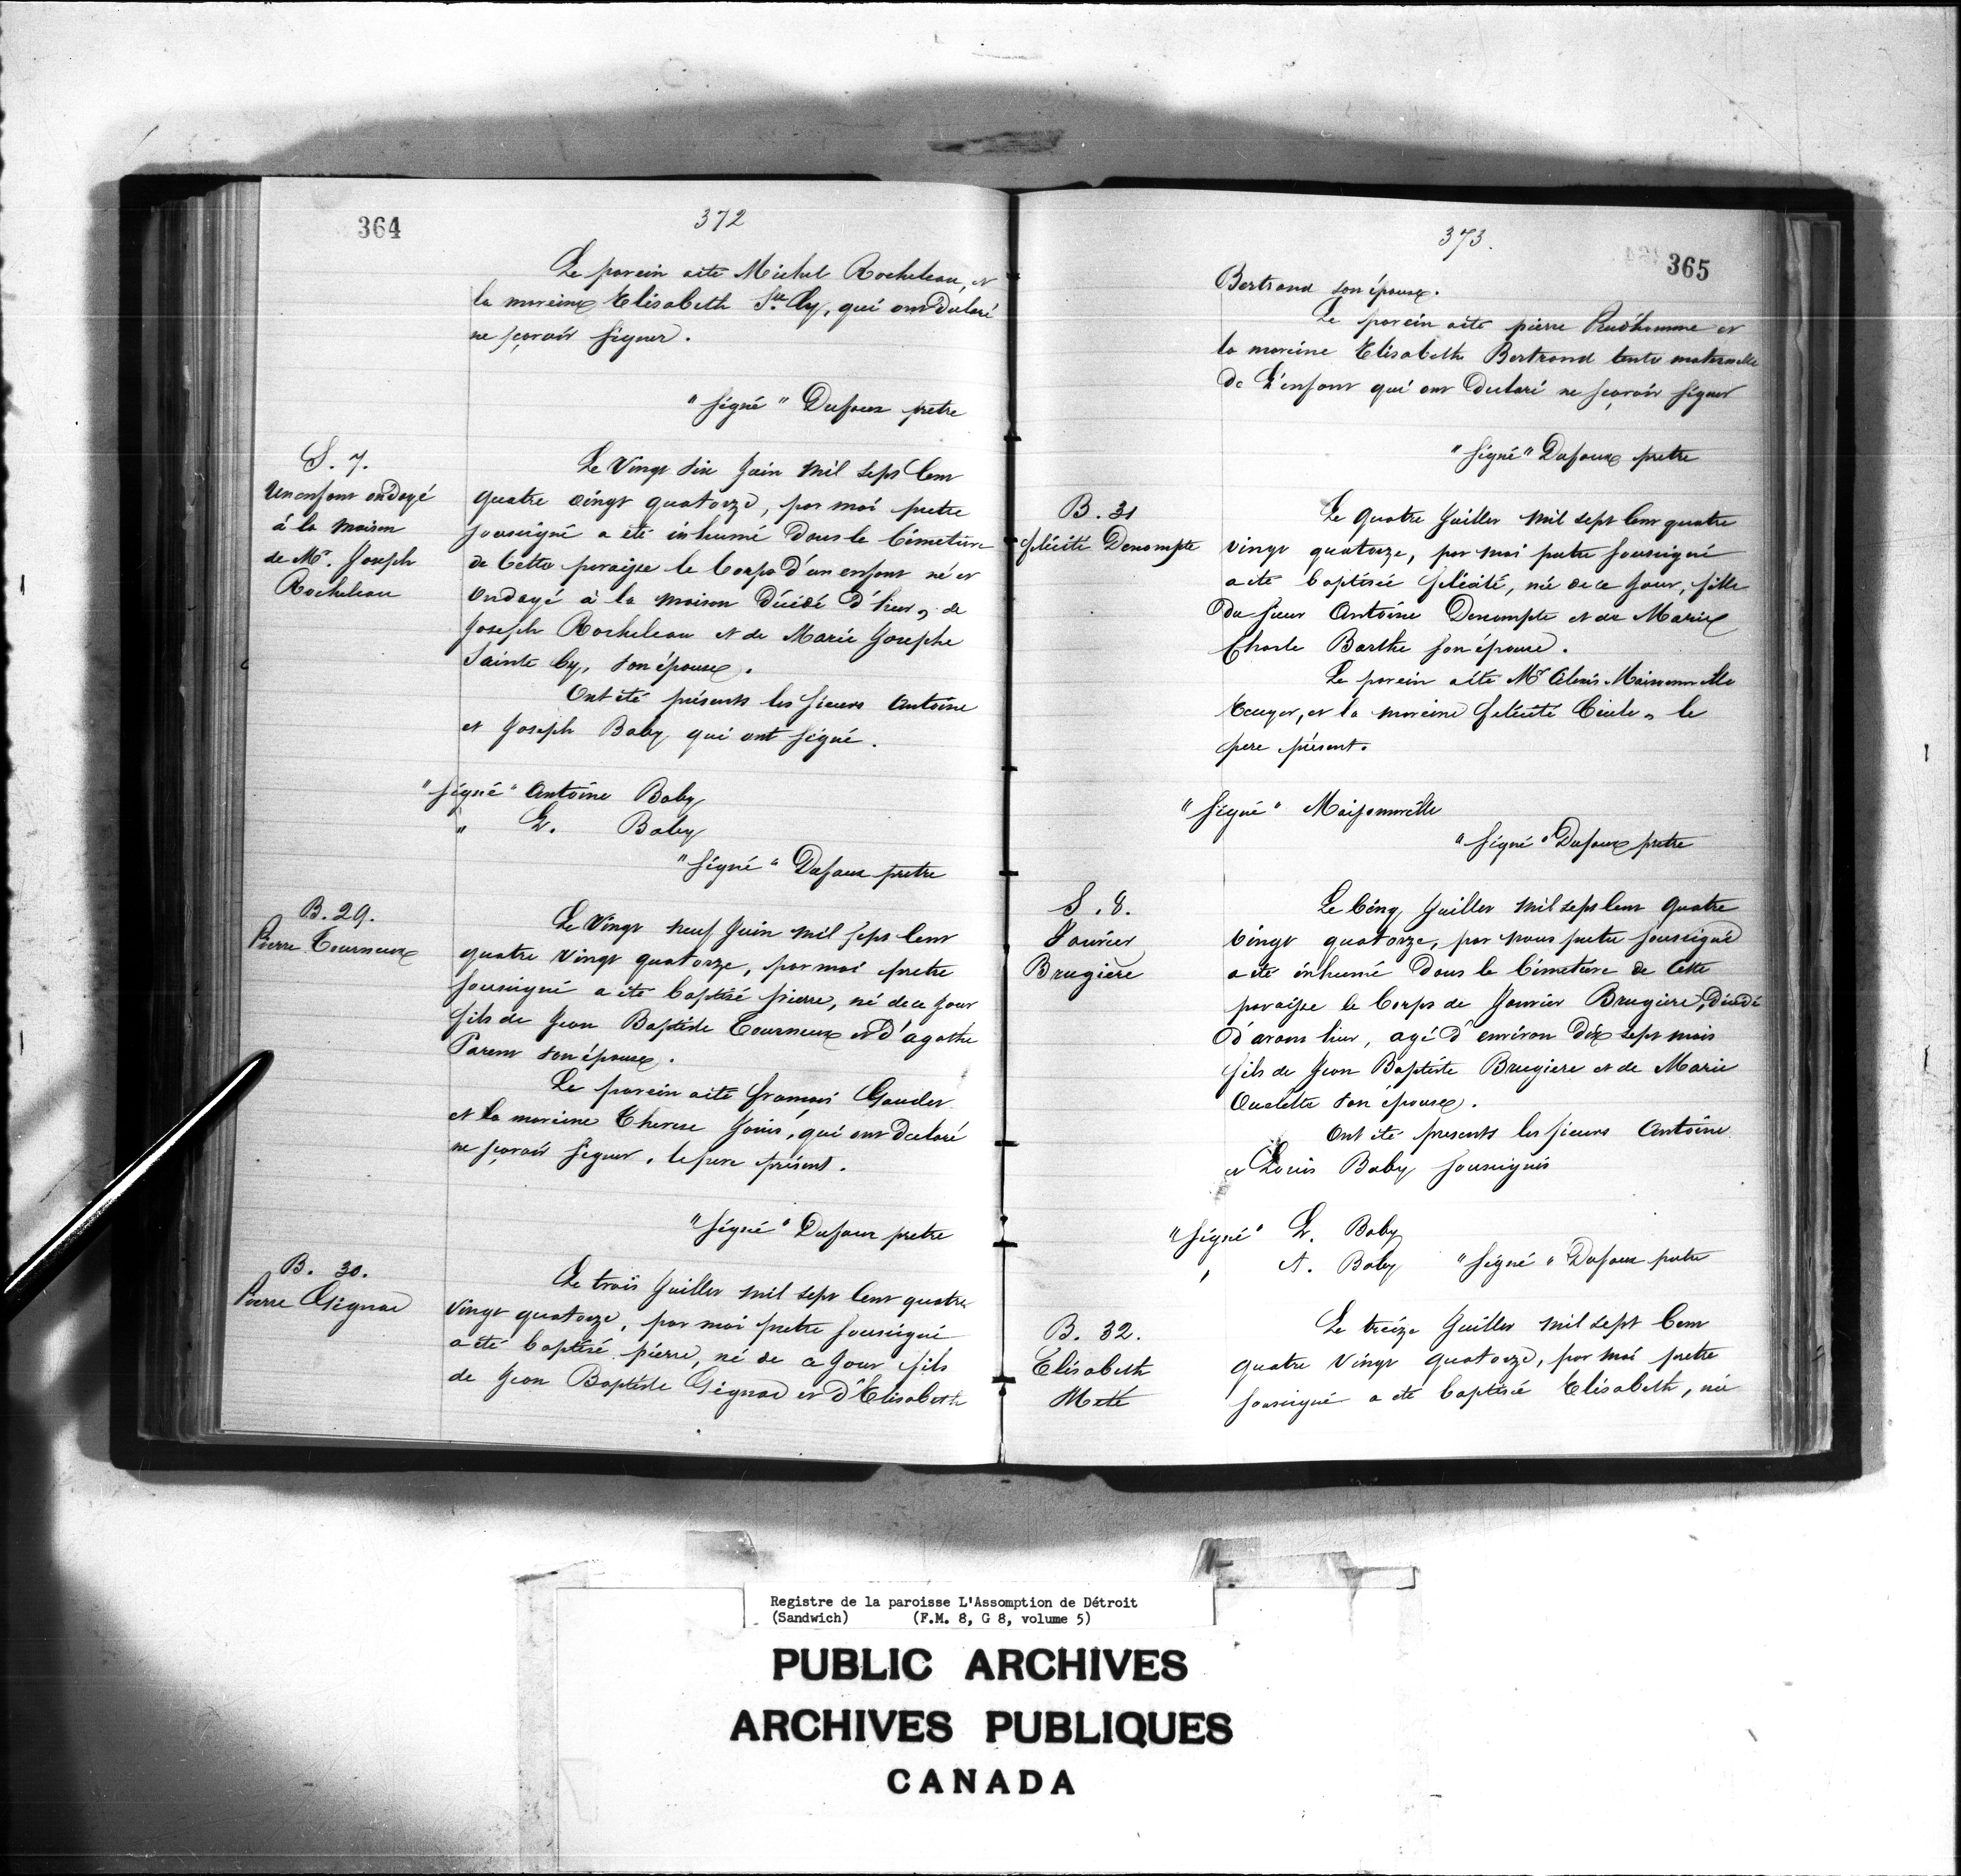 364
372
Le parein a été Michel Rocheleau, et
la mareine Elisabeth Ste Cy, qui ont déclaré
ne sçavoir signer.
"signé" Dufaux pretre
S. 7.
Un enfant ondoyé
à la maison
de Mr. Joseph
Rocheleau
Le Vingt six Juin mil sept Cent
quatre vingt quatorze, par moi pretre
soussigné a été inhumé dans le Cimetiere
de Cette paroisse le Corps d'un enfant né et
Ondoyé à la maison décédé d'hier, de
Joseph Rocheleau et de Marie Josephe
Sainte Cy, son épouse.
Ont été présents les sieurs Antoine
et Joseph Baby qui ont signé.
"signé" Antoine Baby
" L. Baby
"signé" Dufaux pretre
B. 29.
Pierre Tourneux
Le Vingt neuf Juin mil sept Cent
quatre vingt quatorze, par moi pretre
soussigné a été baptisé pierre, né de ce jour
fils de Jean Baptiste Tourneux et d'agathe
Parent son épouse.
Le parein a été francois Gaudet
et la mareine Therese Janis, qui ont declaré
ne sçavoir signer, le pere présent.
"signé" Dufaux pretre
B. 30.
Pierre Gignac
Le trois Juillet mil sept Cent quatre
vingt quatorze, par moi pretre soussigné
a été baptisé pierre, né de ce jour fils
de Jean Baptiste Gignac et d'Elisabeth
373.
365
Bertrand son épouse.
Le parein a été pierre Prud'homme et
la mareine Elisabeth Bertrand tante maternelle
de L'enfant qui ont declaré ne sçavoir signer
"signé" Dufaux pretre
B. 31
félicité Decompte
Le quatre Juillet mil sept Cent quatre
vingt quatorze, par moi pretre soussigné
a été baptisée félicité, née de ce jour, fille
Du sieur Antoine Decompte et de Marie
Charle Barthe son épouse.
Le parein a été Mr Alexis Maisonville
Ecuyer, et la mareine felicité, le
pere présent.
"signé" Maisonville
"signé" Dufaux pretre
S. 8.
Janvier
Brugière
Le Cinq Juillet mil sept Cent quatre
vingt quatorze, par nous pretre soussigné
a été inhumé dans le Cimetiere de Cette
paroisse le Corps de Janvier Brugiere, décédé
d'avant hier, agé d'environ dix sept mois
fils de Jean Baptiste Brugiere et de Marie
Ouelette son épouse.
Ont été presents les sieurs Antoine
et Louis Baby soussignés
"signé" L. Baby
" A. Baby "signé" Dufaux pretre
B. 32.
Elisabeth
Meté
Le treize Juillet mil sept Cent
quatre Vingt quatorze, par moi pretre
soussigné a été baptisée Elisabeth, née
Registre de la paroisse L'Assomption de Détroit
(Sandwich) (F.M. 8, G 8, volume 5)
PUBLIC ARCHIVES
ARCHIVES PUBLIQUES
CANADA